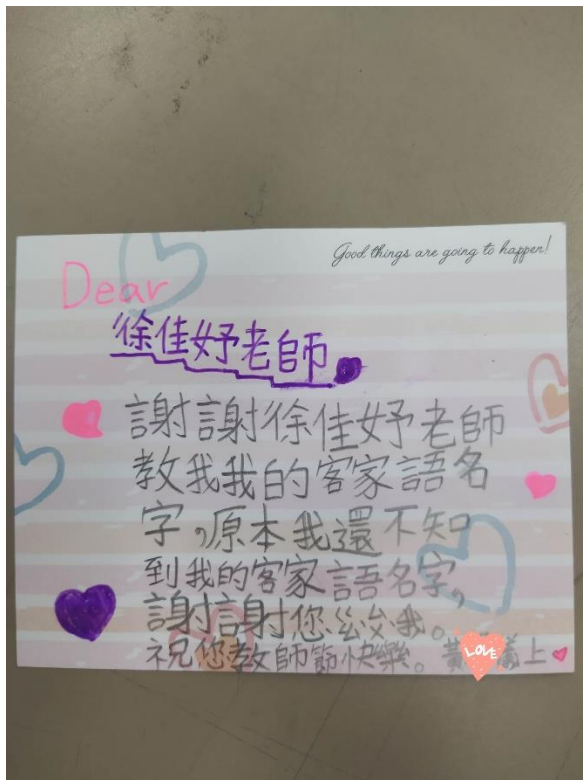 Good things are going to happen!
Dear
徐佳妤老師
謝謝徐佳妤老師
教我我的客家語名
字,原本我還不知
到我的客家語名字,
謝謝您ㄠ我。
祝您教師節快樂。黃 LOVE 上